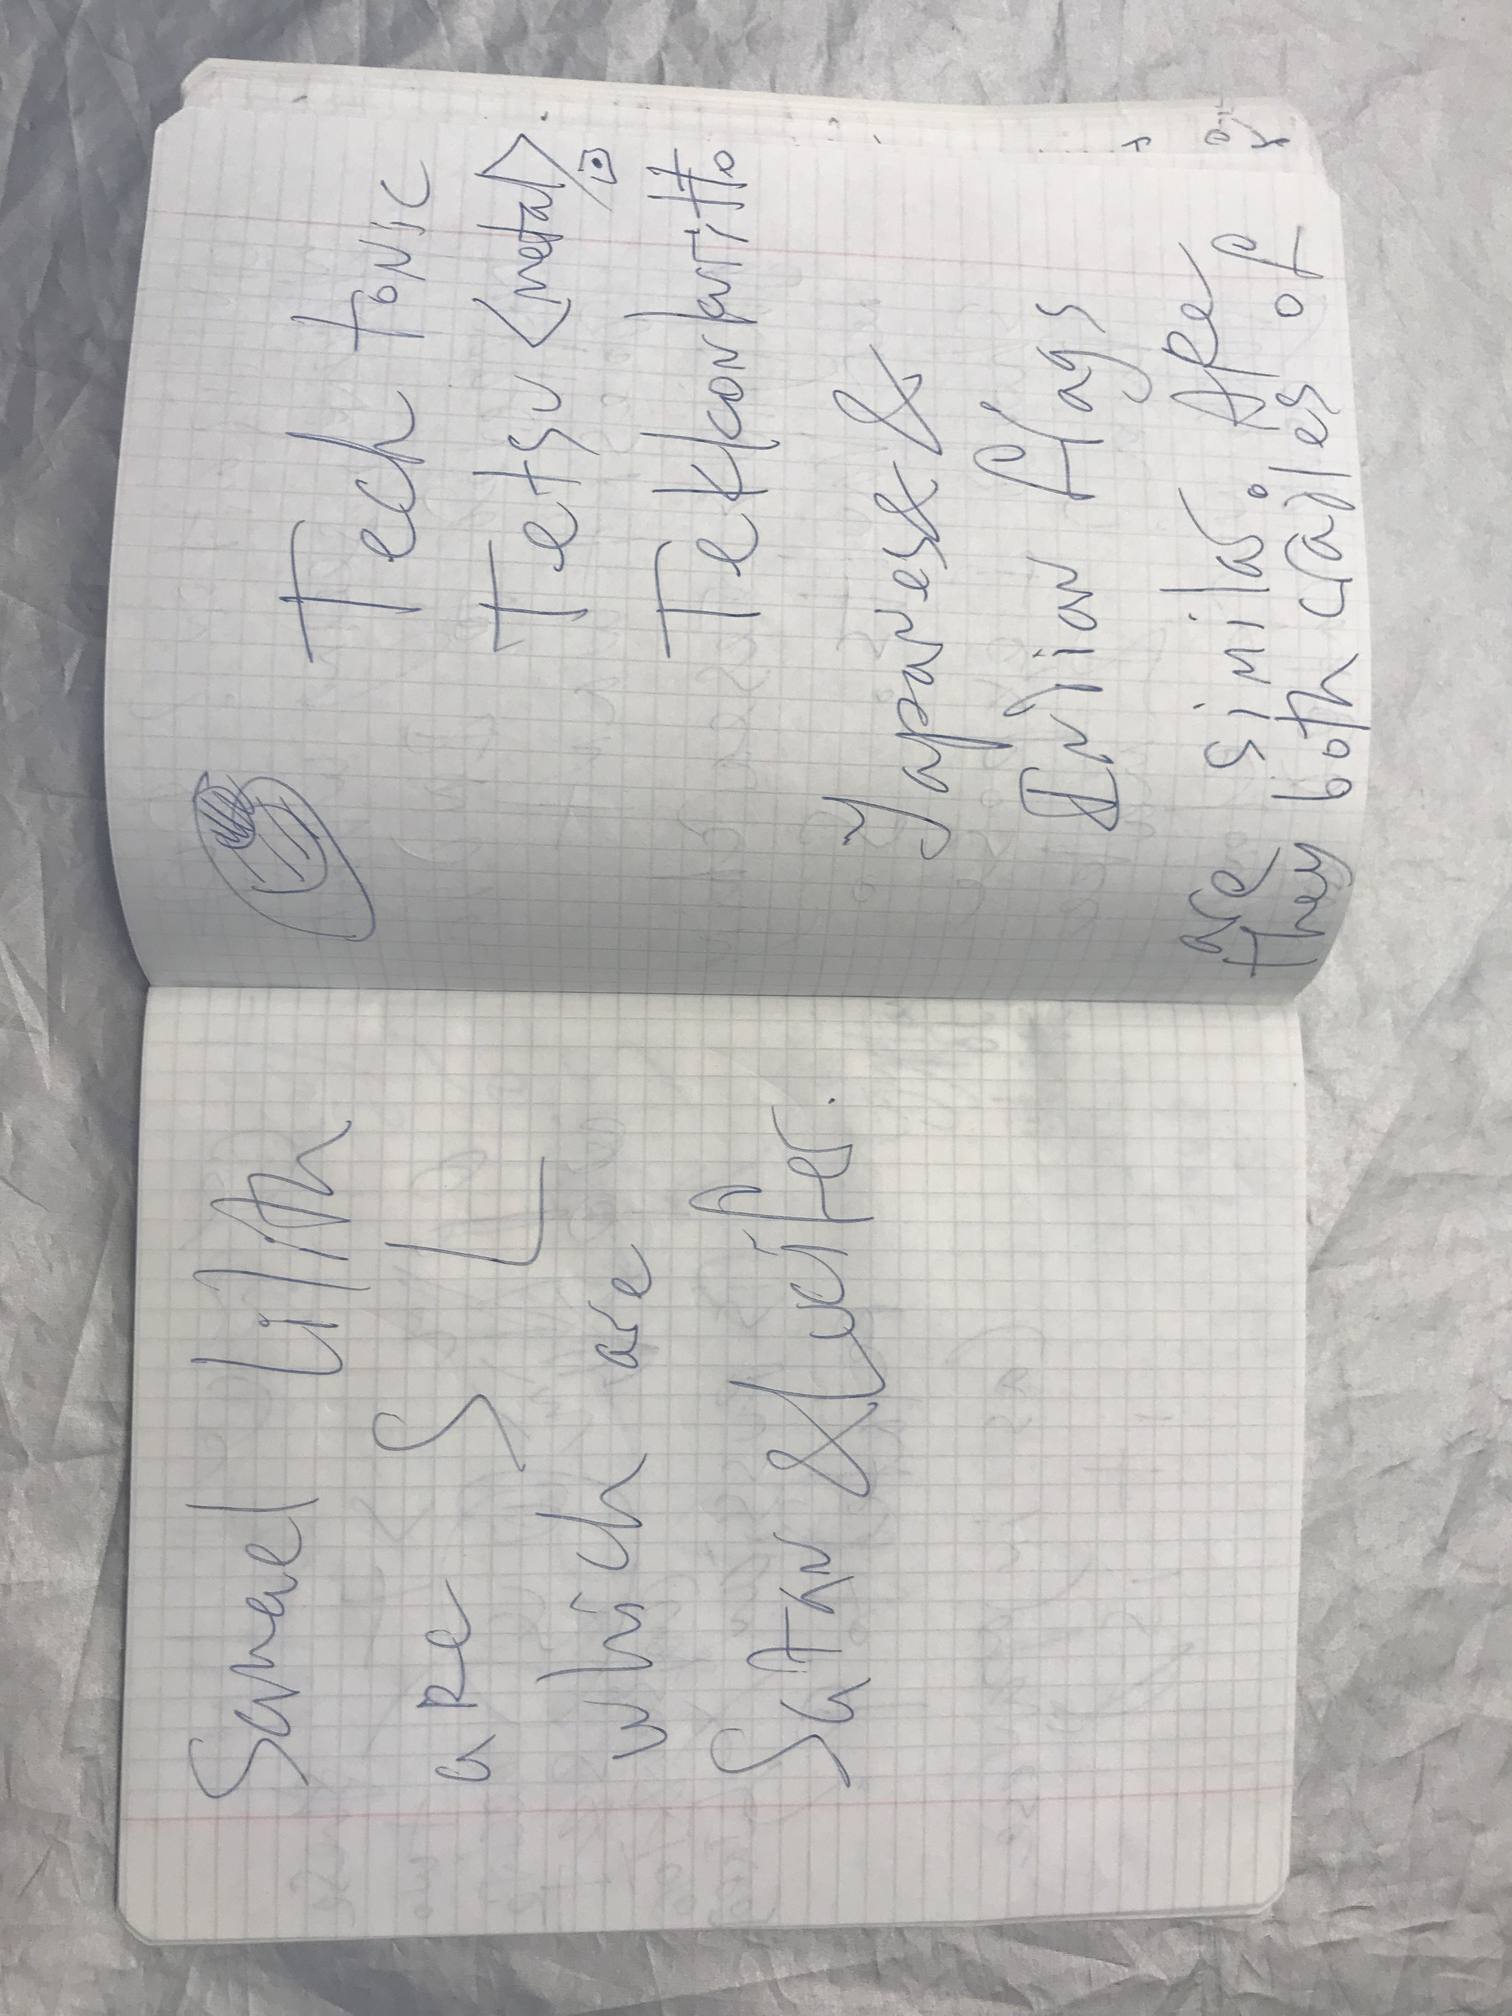 Samael Lilith
are S L
which are
Satan & Lucifer.
Tech tonic
Tetsu <metal>
Tek/con/
Japanes&
Indian flags
are similar. Are
they both cradles of